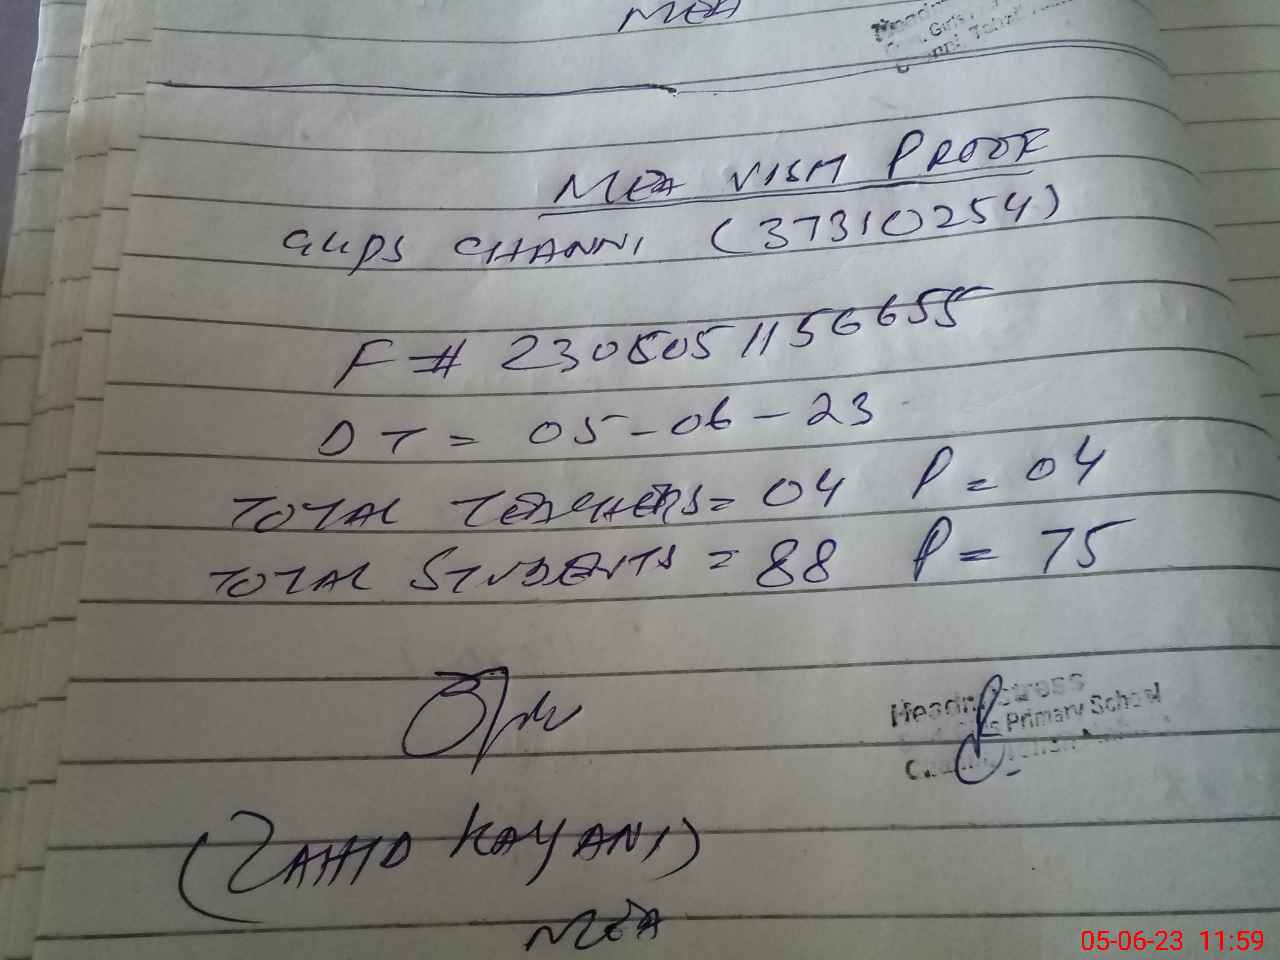 MEA
Girls
MEA VISIT PROOF
GGPS CHANNI (37310254)
F# 2305051156655
DT = 05-06-23
TOTAL TEACHERS = 04 P = 04
TOTAL STUDENTS = 88 P = 75
Headmistress
Girls Primary School
(ZAHID KAYANI)
MEA
05-06-23 11:59